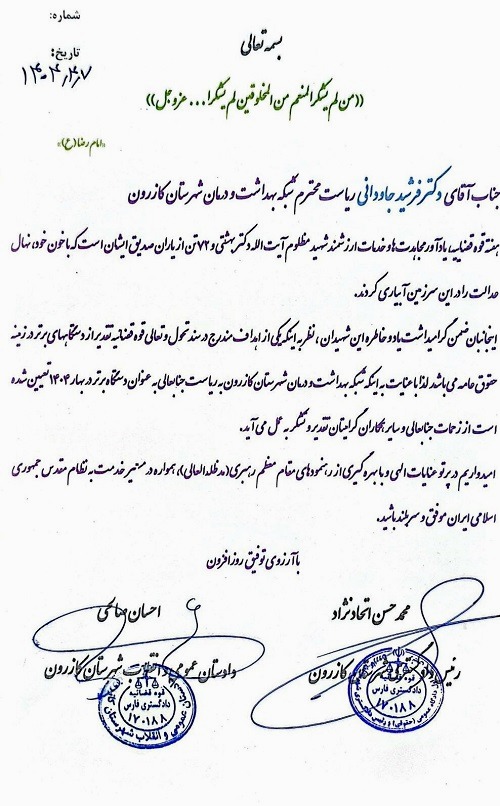 شماره:
تاریخ:
۱۴۰۴/۴/۷
بسمه تعالی
((من لم یشکر المنعم من المخلوقین لم یشکر ا... عزوجل))
«امام رضا (ع)»
جناب آقای دکتر فرشید جاودانی ریاست محترم شبکه بهداشت و درمان شهرستان کازرون
هفته قوه قضاییه، یادآور مجاهدت ها و خدمات ارزشمند شهید مظلوم آیت الله دکتر بهشتی و ۷۲ تن از یاران صدیق ایشان است که با خون خود، نهال
عدالت را در این سرزمین آبیاری کردند.
اینجانبان ضمن گرامیداشت یاد و خاطره این شهیدان، نظر به اینکه یکی از اهداف مندرج در سند تحول و تعالی قوه قضائیه تقدیر از دستگاههای برتر در زمینه
حقوق عامه می باشد لذا با عنایت به اینکه شبکه بهداشت و درمان شهرستان کازرون به ریاست جنابعالی به عنوان دستگاه برتر در بهار ۱۴۰۴ تعیین شده
است از زحمات جنابعالی و سایر همکاران گرامیتان تقدیر و تشکر به عمل می آید.
امیدواریم در پرتو عنایات الهی و با بهره گیری از رهنمودهای مقام معظم رهبری (مدظله العالی)، همواره در مسیر خدمت به نظام مقدس جمهوری
اسلامی ایران موفق و سربلند باشید.
با آرزوی توفیق روزافزون
محمد حسن اتحادنژاد
احسان صالحی
رئیس دادگستری شهرستان کازرون
دادستان عمومی و انقلاب شهرستان کازرون
قوه قضائیه
دادگستری فارس
۱۷۰۱۸۸
قوه قضائیه
دادگستری فارس
۱۷۰۱۸۸
عمومی و انقلاب شهرستان